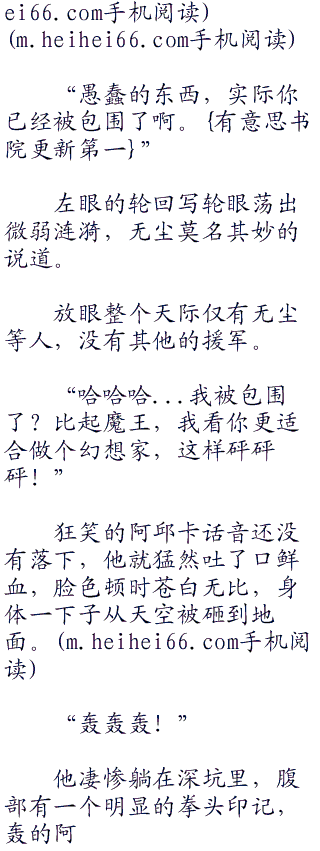 ei66.com手机阅读)
(m.heihei66.com手机阅读)
“愚蠢的东西，实际你
已经被包围了啊。{有意思书
院更新第一}”
左眼的轮回写轮眼荡出
微弱涟漪，无尘莫名其妙的
说道。
放眼整个天际仅有无尘
等人，没有其他的援军。
“哈哈哈...我被包围
了？比起魔王，我看你更适
合做个幻想家，这样砰砰
砰！”
狂笑的阿邱卡话音还没
有落下，他就猛然吐了口鲜
血，脸色顿时苍白无比，身
体一下子从天空被砸到地
面。(m.heihei66.com手机阅
读)
“轰轰轰！”
他凄惨躺在深坑里，腹
部有一个明显的拳头印记，
轰的阿